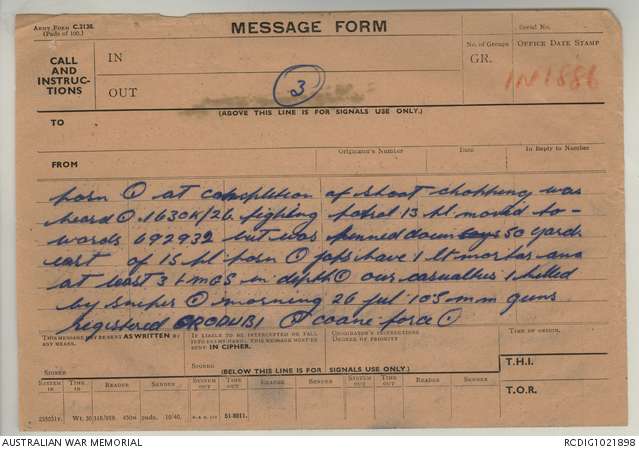 ARMY FORM C.2136.
(Pads of 100.)
MESSAGE FORM
Serial No.
CALL
AND
INSTRUC-
TIONS
IN
OUT
3
No. of Groups
GR.
OFFICE DATE STAMP
IN 1886
(ABOVE THIS LINE IS FOR SIGNALS USE ONLY.)
TO
FROM
Originator's Number
Date
In Reply to Number
posn ⊙ at completion of shoot chopping was
heard ⊙ 1630K/26 fighting patrol 13 pl moved to-
wards 692932 but was pinned down 50 yards
east of 15 pl posn ⊙ japs have 1 lt mortar and
at least 3 LMGS in depth ⊙ our casualties 1 killed
by sniper ⊙ morning 26 jul 105 mm guns
registered ORODUBI ⊙ coane force ⊙
THIS MESSAGE MAY BE SENT AS WRITTEN BY
ANY MEANS.
SIGNED
IF LIABLE TO BE INTERCEPTED OR FALL
INTO ENEMY HANDS, THIS MESSAGE MUST BE
SENT IN CIPHER.
SIGNED
ORIGINATOR'S INSTRUCTIONS
DEGREE OF PRIORITY
TIME OF ORIGIN.
(BELOW THIS LINE IS FOR SIGNALS USE ONLY.)
T.H.I.
SYSTEM IN
TIME IN
READER
SENDER
SYSTEM OUT
TIME OUT
READER
SENDER
SYSTEM OUT
TIME OUT
READER
SENDER
T.O.R.
10/40.
51-8011.
AUSTRALIAN WAR MEMORIAL
RCDIG1021898